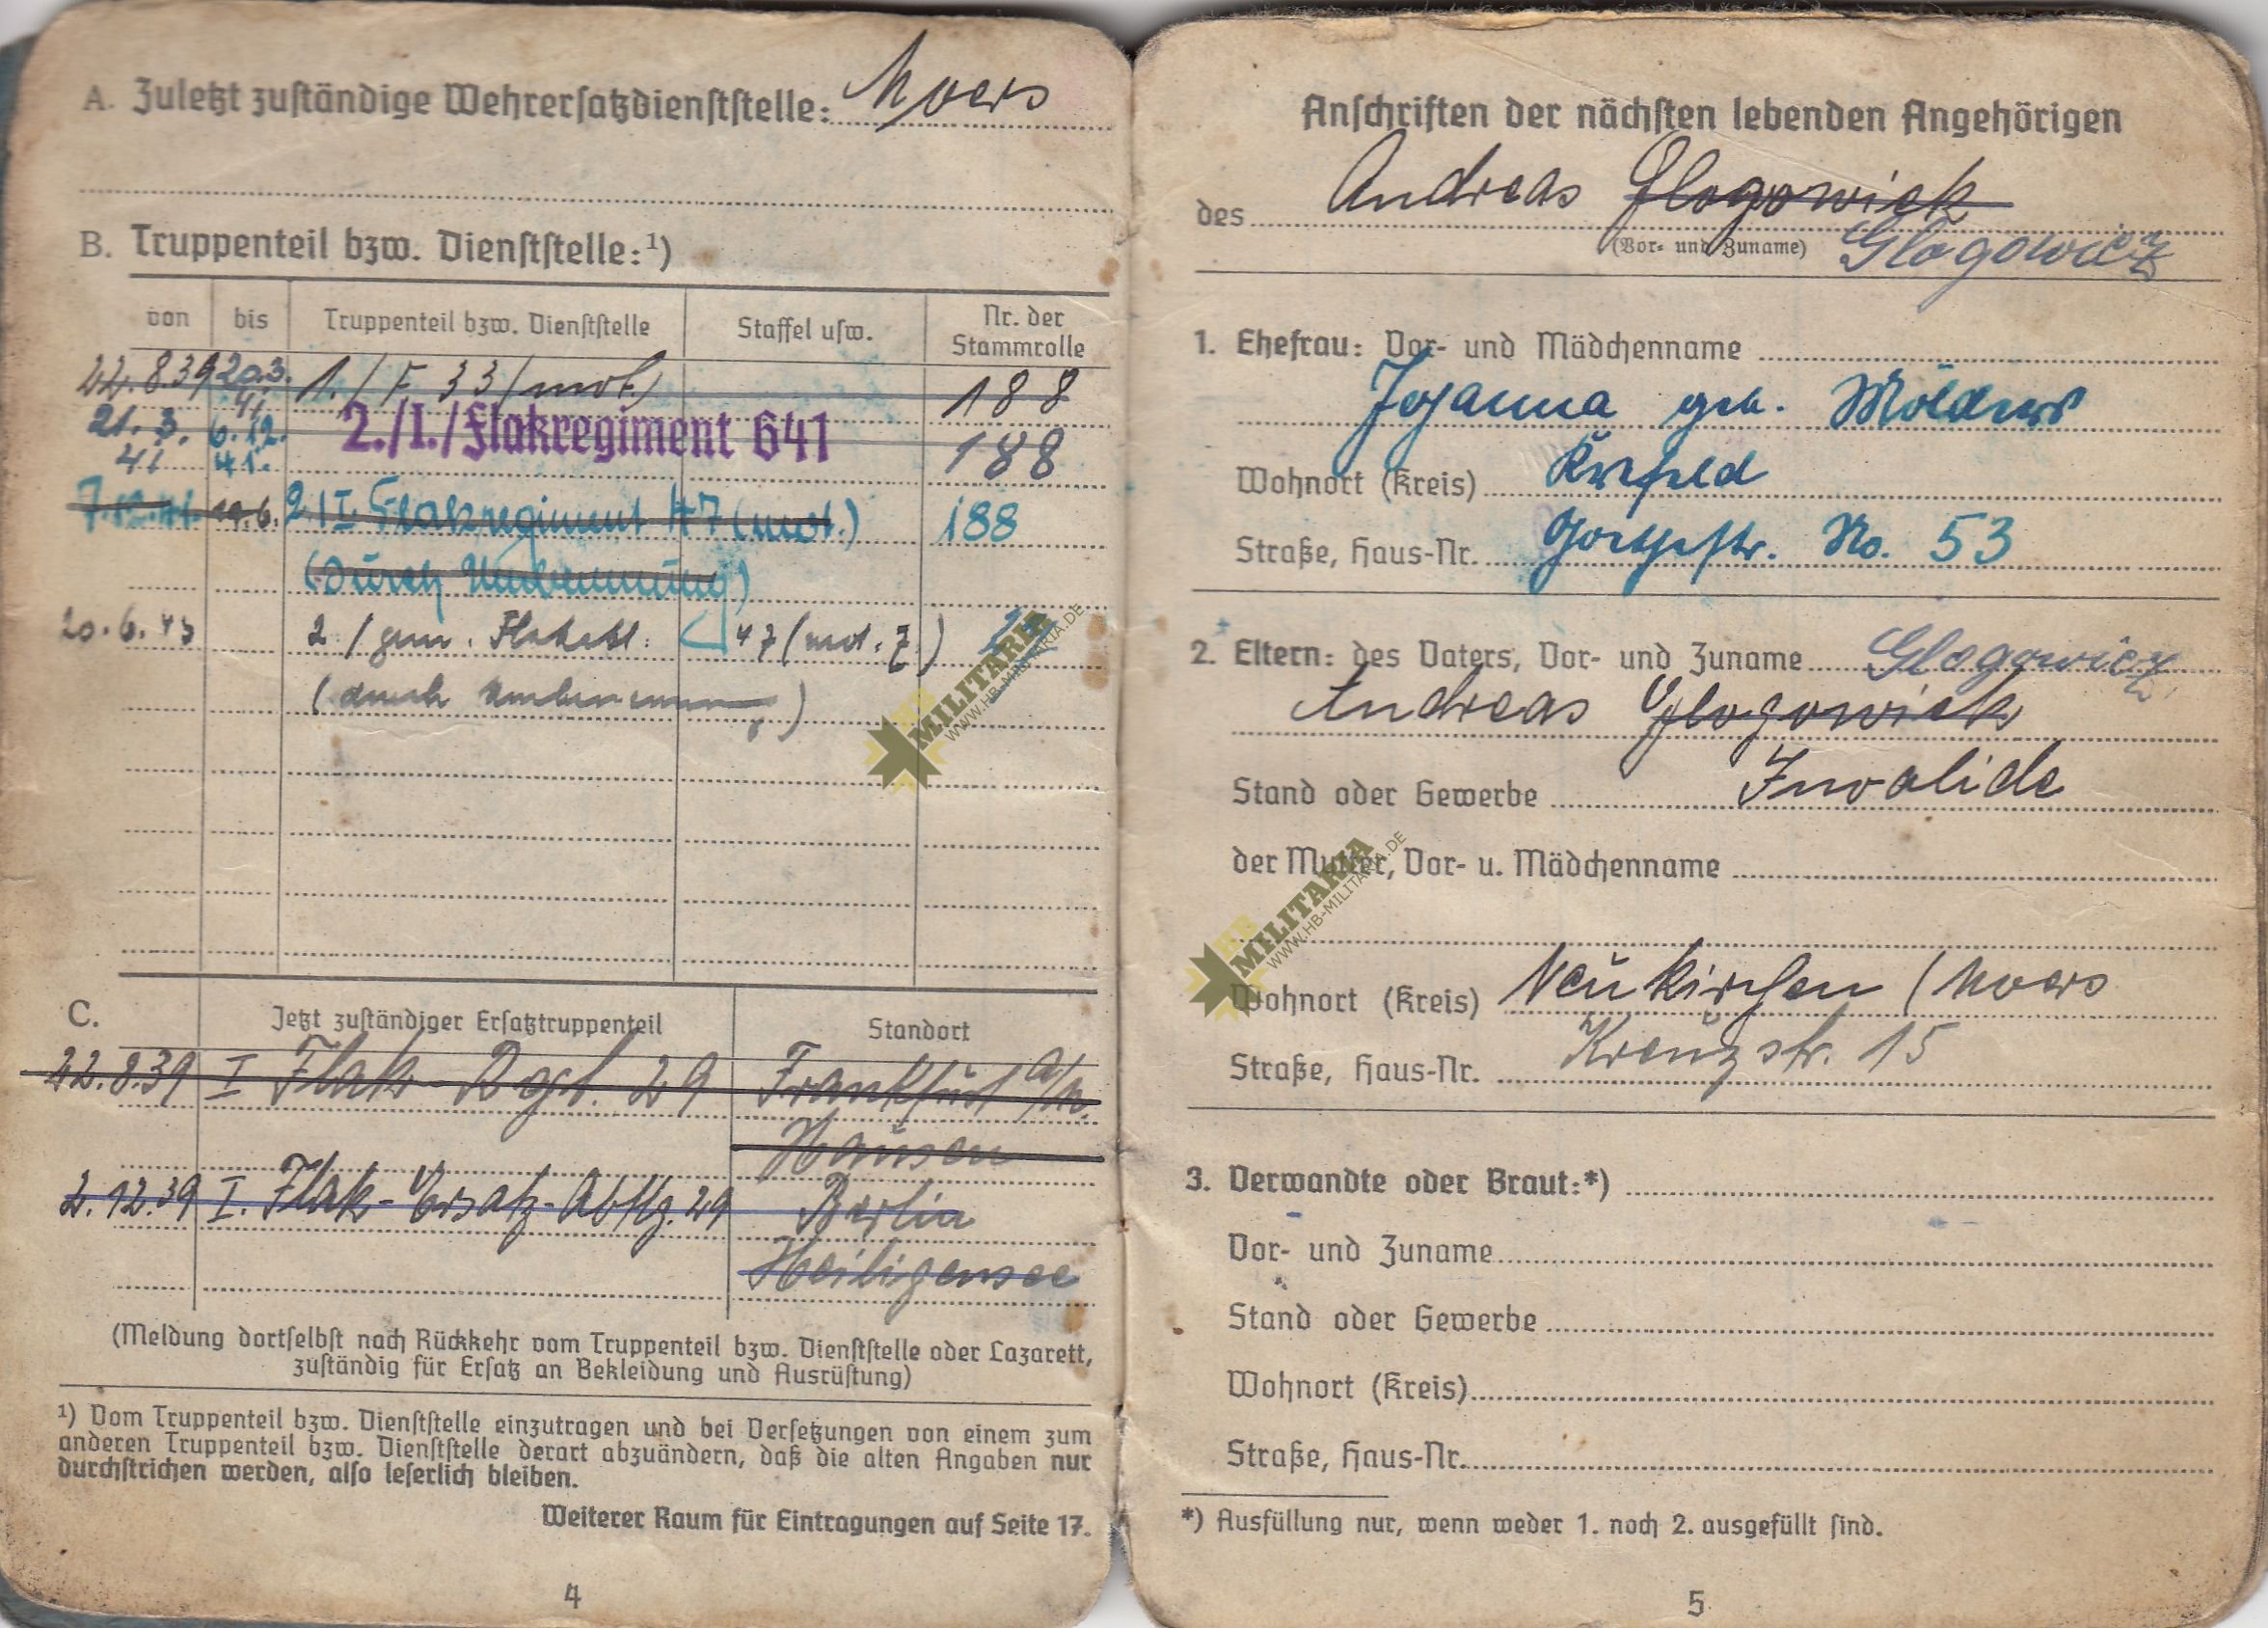 A. Zuletzt zuständige Wehrersatzdienststelle: Moers
B. Truppenteil bzw. Dienststelle:¹)
von bis Truppenteil bzw. Dienststelle Staffel usw. Nr. der Stammrolle
22.8.39 20.3.41. 1./F 33 (mot) 188
21.3.41 6.12.41. 2./I./Flakregiment 641 188
7.12.41. 19.6. 2./I. Flakregiment 47 (mot.) 188
(durch Umbenennung)
20.6.43 2./gem. Flakabt. 47 (mot. Z)
(durch Umbenennung)
C. Jetzt zuständiger Ersatztruppenteil Standort
22.8.39 I Flak-Rgt. 29 Frankfurt a/M.
Hausen
2.12.39 I. Flak-Ersatz-Abtlg. 29 Berlin
Heiligensee
(Meldung dortselbst nach Rückkehr vom Truppenteil bzw. Dienststelle oder Lazarett,
zuständig für Ersatz an Bekleidung und Ausrüstung)
¹) Vom Truppenteil bzw. Dienststelle einzutragen und bei Versetzungen von einem zum
anderen Truppenteil bzw. Dienststelle derart abzuändern, daß die alten Angaben nur
durchstrichen werden, also leserlich bleiben.
Weiterer Raum für Eintragungen auf Seite 17.
4
Anschriften der nächsten lebenden Angehörigen
des Andreas Glogowiek
(Vor- und Zuname) Glogowicz
1. Ehefrau: Vor- und Mädchenname
Johanna geb. Mölders
Wohnort (Kreis) Krefeld
Straße, Haus-Nr. Goethestr. No. 53
2. Eltern: des Vaters, Vor- und Zuname Glogowicz
Andreas Glogowiek
Stand oder Gewerbe Invalide
der Mutter, Vor- u. Mädchenname
Wohnort (Kreis) Neukirchen / Moers
Straße, Haus-Nr. Kreuzstr. 15
3. Verwandte oder Braut:*)
Vor- und Zuname
Stand oder Gewerbe
Wohnort (Kreis)
Straße, Haus-Nr.
*) Ausfüllung nur, wenn weder 1. noch 2. ausgefüllt sind.
5
HB MILITARIA
WWW.HB-MILITARIA.DE
HB MILITARIA
WWW.HB-MILITARIA.DE